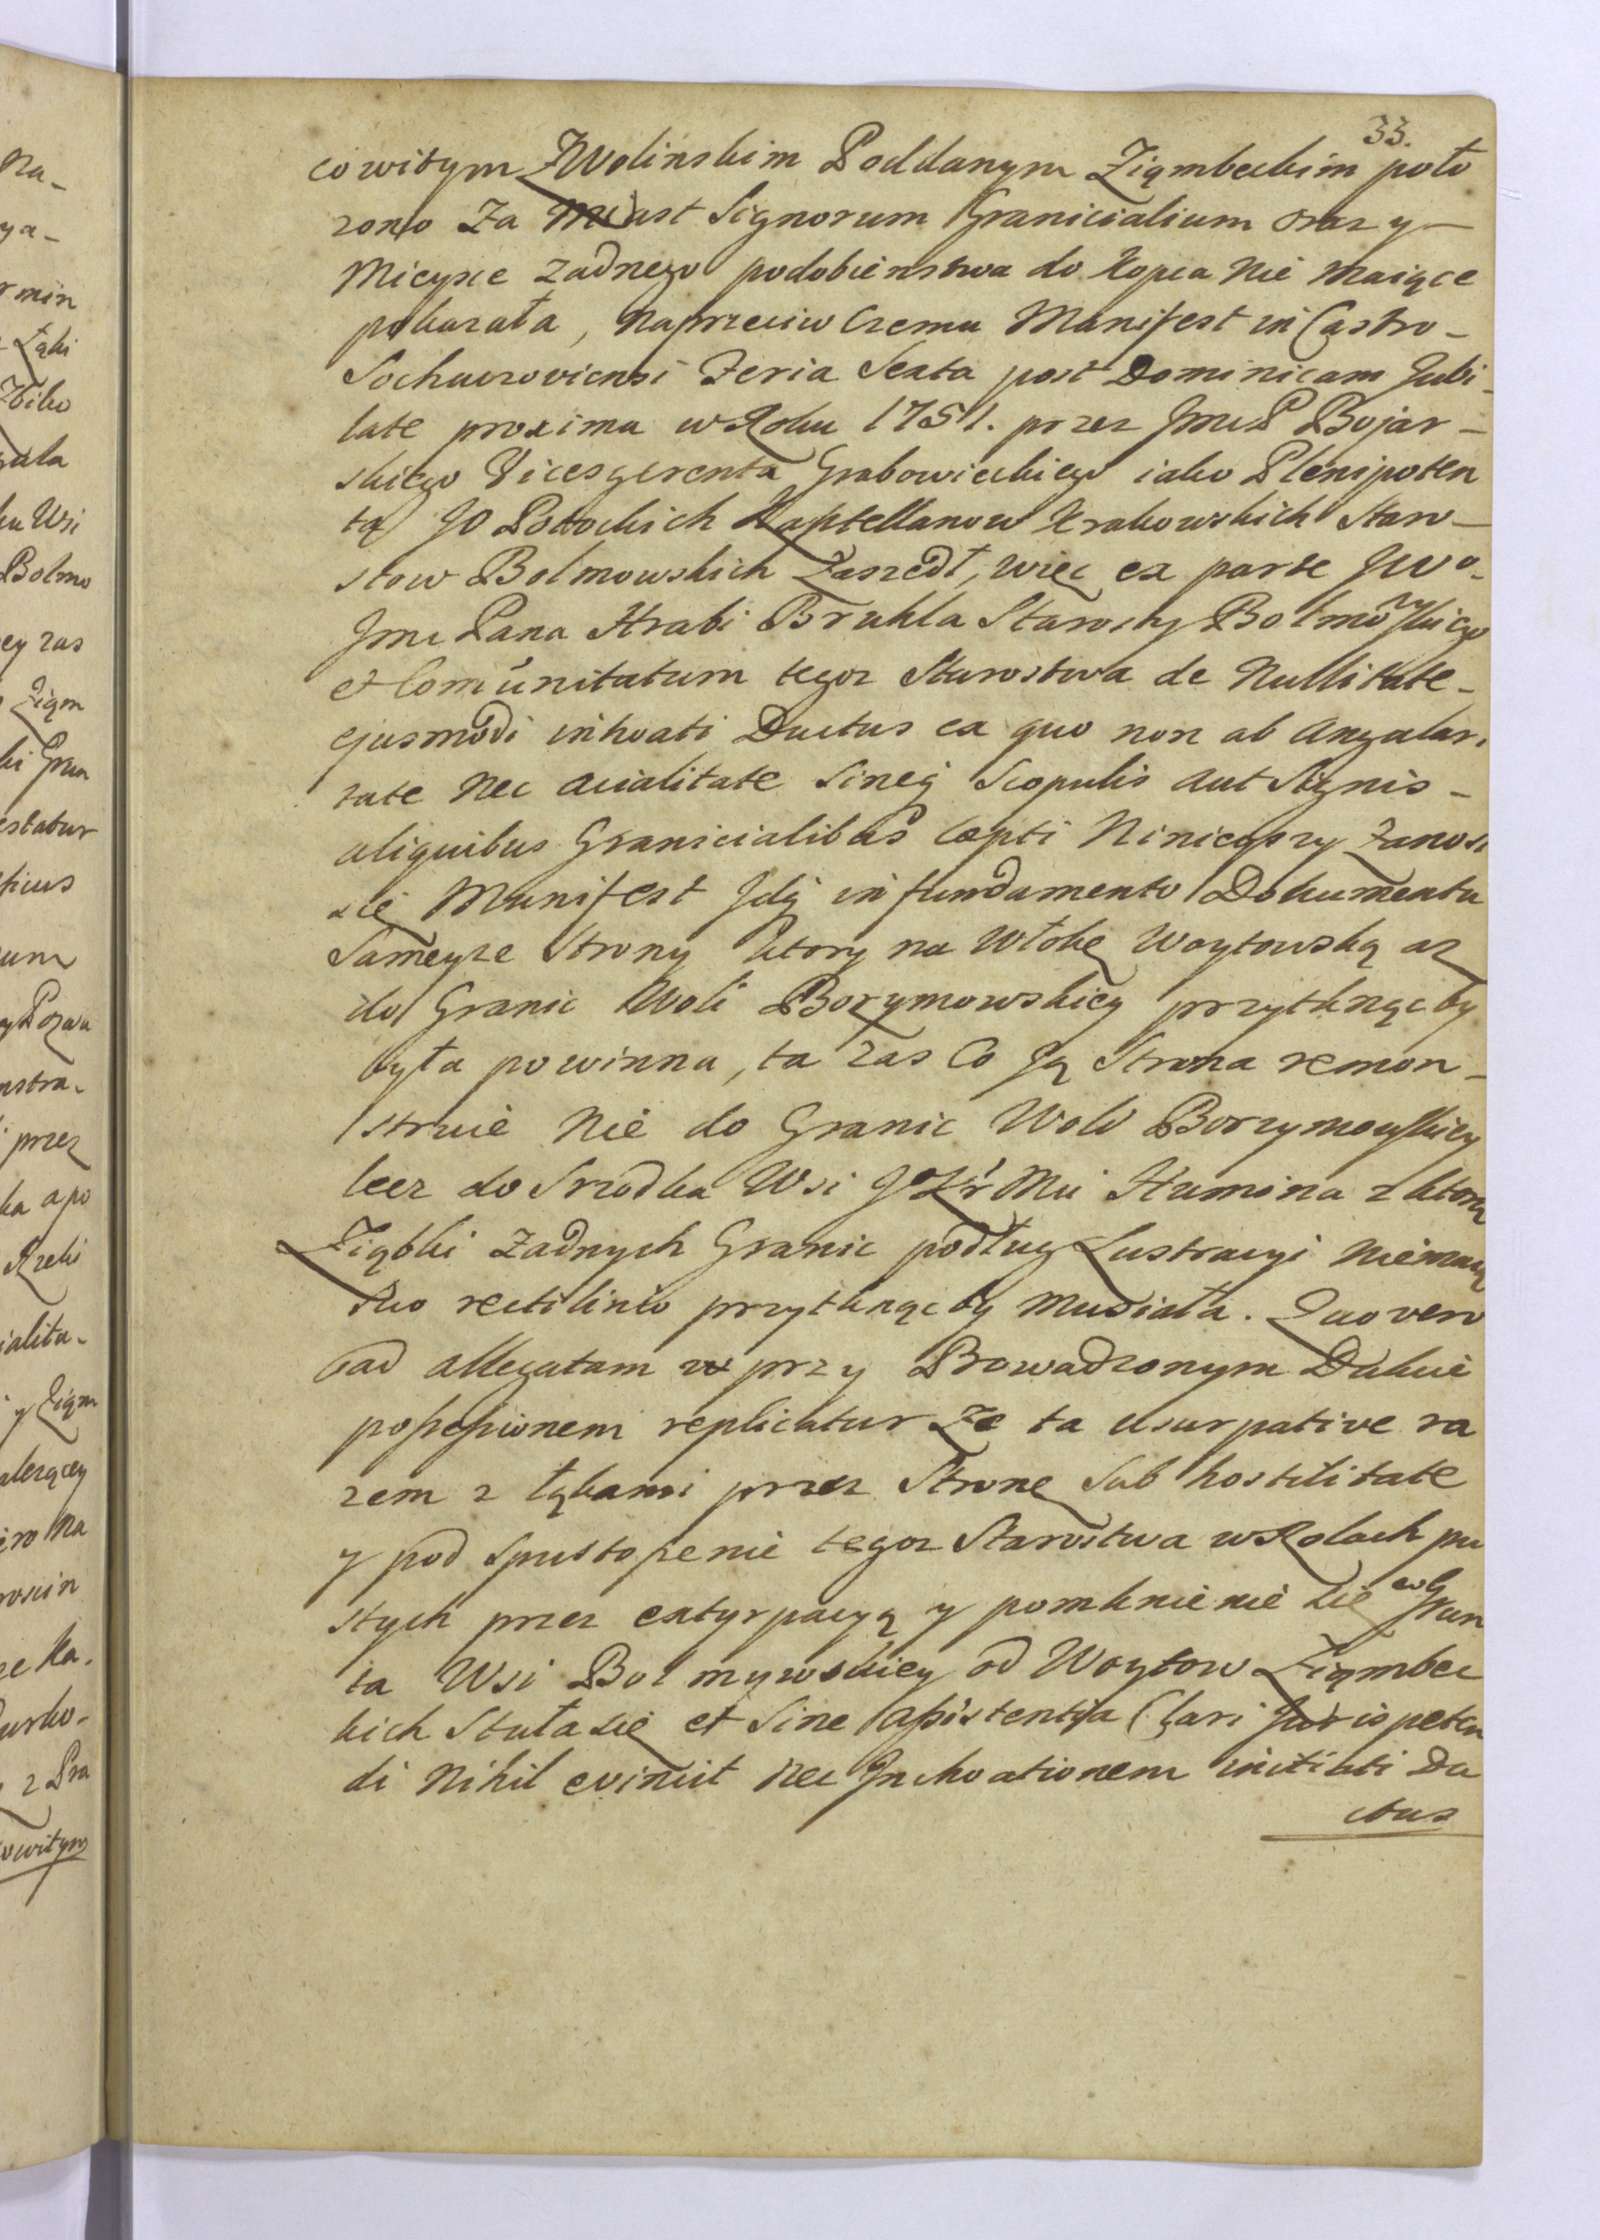 33.
cowitym Z Wolinskim Poddanym Ziąmbeckim poło
zono Za Miast Signorum Granicialium oraz y
Mieysce zadnego podobienstwa do Kopca Nie Maiące
pokazała, Naprzeciw Czemu Manifest in Castro
Sochaczoviensi Feria Sexta post Dominicam Jubi
late proxima w Roku 1751. przez JmcP Bojar
skiego Vicesgerenta Grabowieckiego iako Plenipoten
ta JO Potockich Kasztellanow Krakowskich Staro
stow Bolmowskich Zaszedł, więc ex parte JWo
Jmc Pana Hrabi Bruhla Starosty Bolmowskiego
et Comunitatum tegoz Starostwa de Nullitate
ejusmodi inhoati Ductus ex quo non ab Angulari
tate Nec acialitate Sineq Scopulis aut Signis
aliquibus Granicialibus Coepti Ninieyszy Zanosi
się Manifest Jdq in fundamento Dokumentu
Sameyze Strony ktory na Włokę Woytowską az
do Granic Woli Borzymowskiey przytknąc by
była powinna, ta zas Co Ją Strona remon
struie Nie do Granic Woli Borzymowskiey
lecz do Srzodka Wsi JKr Mci Humina z ktorą
Ziąbki Zadnych Granic podług Lustracyi Niemaią
suo rectilinio przytknąc by Musiała. Quo vero
ad allegatam w przy Prowadzonym Dukcie
possessionem replicatur Ze ta usurpative ra
zem z łąkami przez Stronę Sub hostilitate
y pod Spustoszenie tegoz Starostwa w Rolach pu
stych przez extyrpacyą y pomknienie się w Grun
ta Wsi Bolmowskiey od Woytow Ziąmbec
kich Stała się et Sine assistentia Clari Juris peten
di Nihil evincit Nec Inchoationem initiati Du
ctus